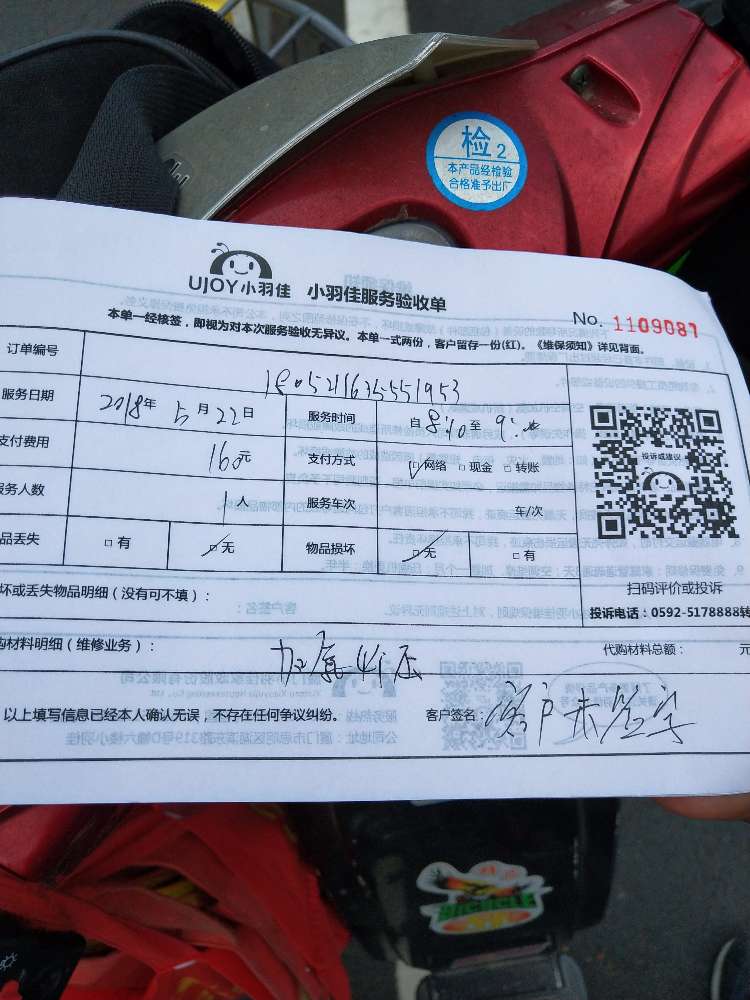 检2
本产品经检验
合格准予出厂
UJOY小羽佳 小羽佳服务验收单
No. 1109087
本单一经核签，即视为对本次服务验收无异议。本单一式两份，客户留存一份(红)。《维保须知》详见背面。
订单编号
服务日期 2018年 5月22日 服务时间 自8:40至9:
支付费用 160元 支付方式 网络 □现金 □转账
投诉或建议
服务人数 1人 服务车次 车/次
品丢失 □有 无 物品损坏 无 □有
扫码评价或投诉
坏或丢失物品明细（没有可不填）： 投诉电话：0592-5178888转
购材料明细（维修业务）： 加氟 代购材料总额： 元
以上填写信息已经本人确认无误，不存在任何争议纠纷。 客户签名：客户未签字
BICYCLE